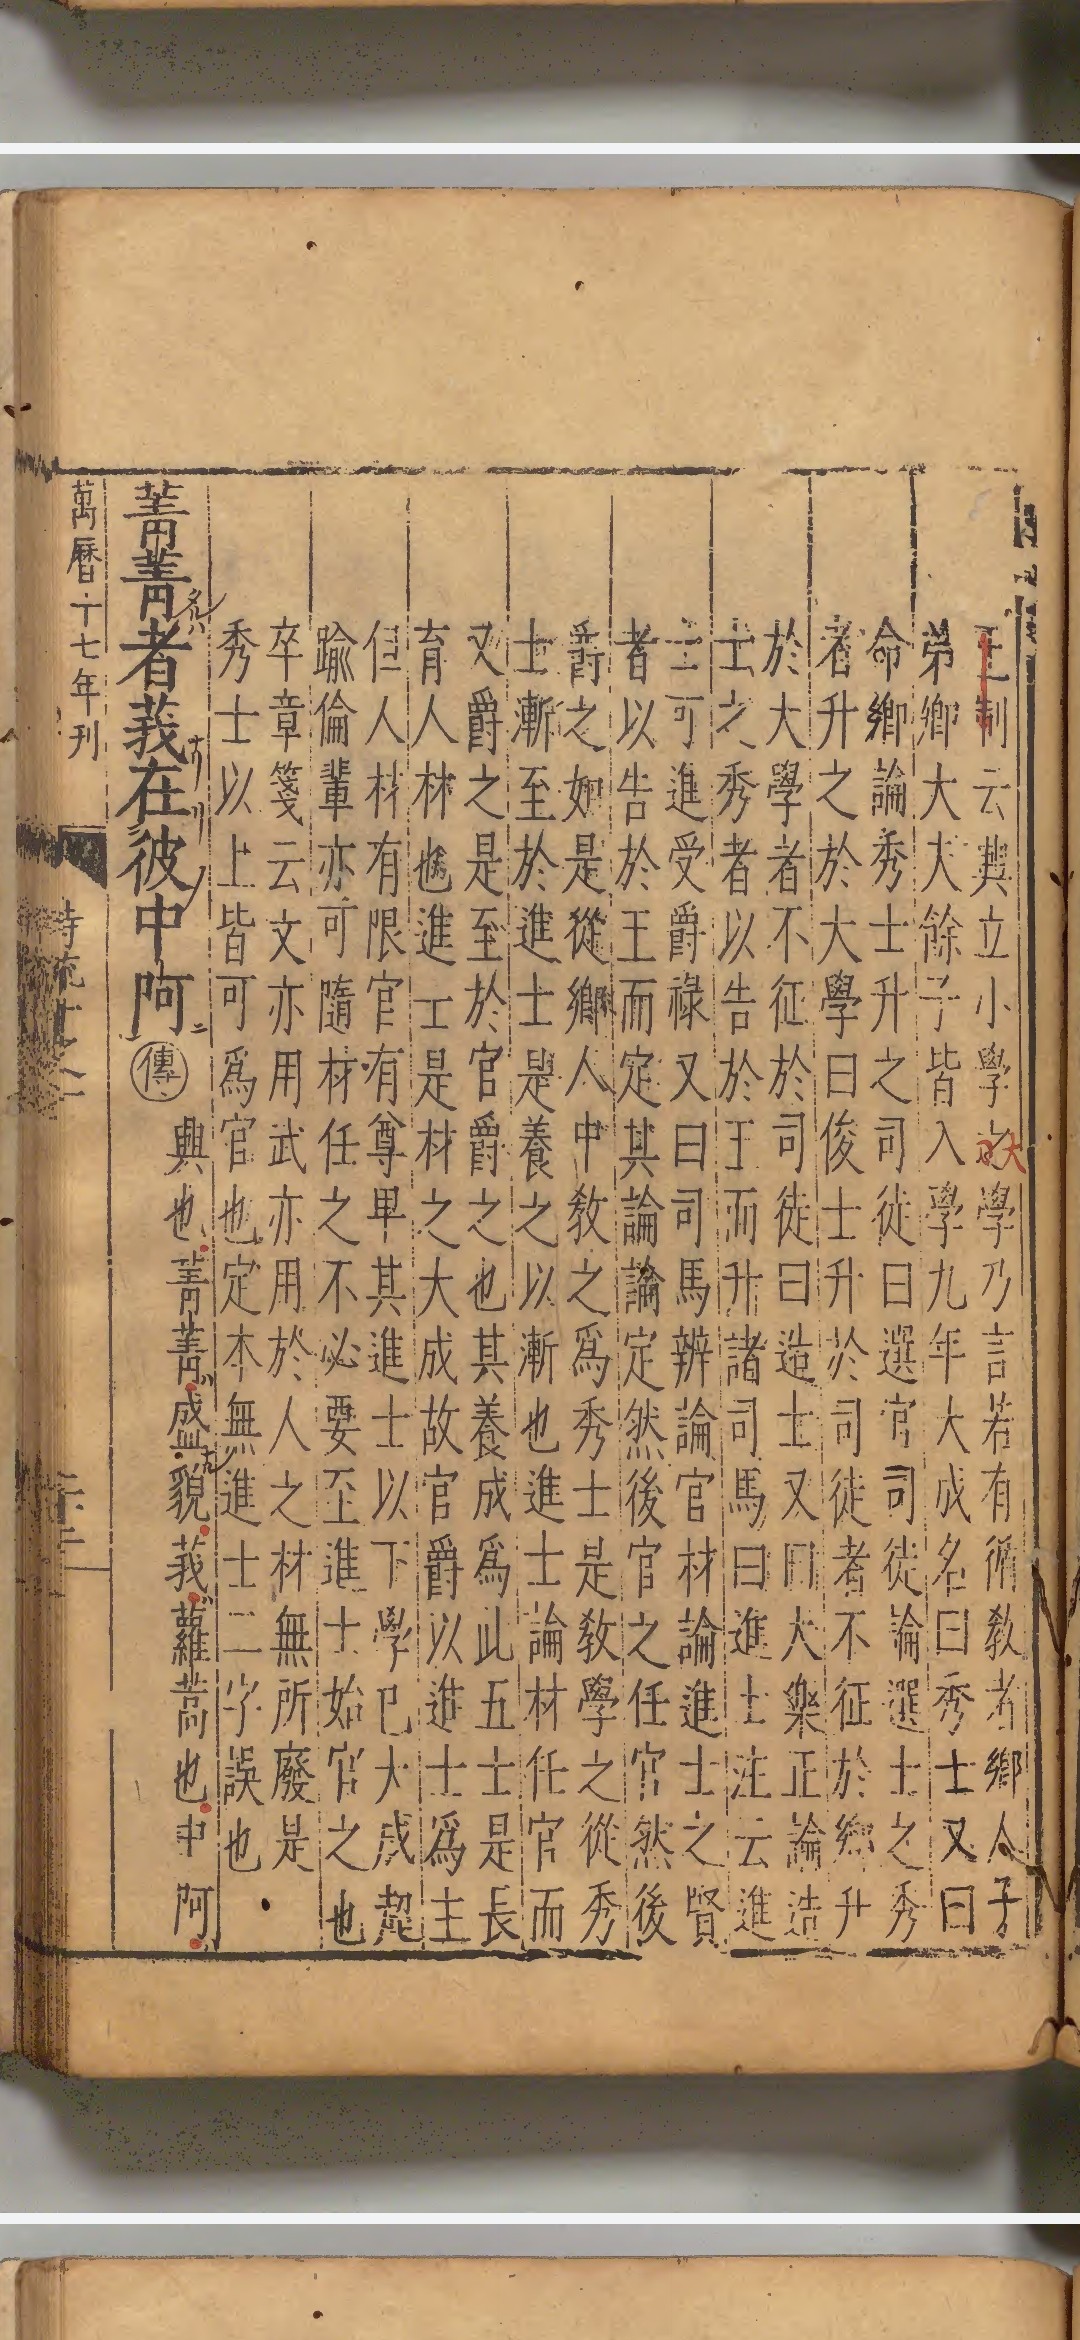 王制云興立小學大學乃言若有循教者鄉人子
弟鄉大大餘子皆入學九年大成名曰秀士又曰
命鄉論秀士升之司徒曰選官司徒論選士之秀
者升之於大學曰俊士升於司徒者不征於鄉升
於大學者不征於司徒曰造士又曰大樂正論造
士之秀者以告於王而升諸司馬曰進士注云進
士可進受爵祿又曰司馬辨論官材論進士之賢
者以告於王而定其論論定然後官之任官然後
爵之如是從鄉人中教之為秀士是教學之從秀
士漸至於進士是養之以漸也進士論材任官而
又爵之是至於官爵之也其養成爲此五士是長
育人材也進士是材之大成故官爵以進士爲主
但人材有限官有尊卑其進士以下學已大成超
踰倫輩亦可隨材任之不必要至進士始官之也
卒章箋云文亦用武亦用於人之材無所廢是
秀士以上皆可爲官也定本無進士二字誤也
菁菁者莪在彼中阿
傳
興也菁菁盛貌莪蘿蒿也中阿
萬曆十七年刊